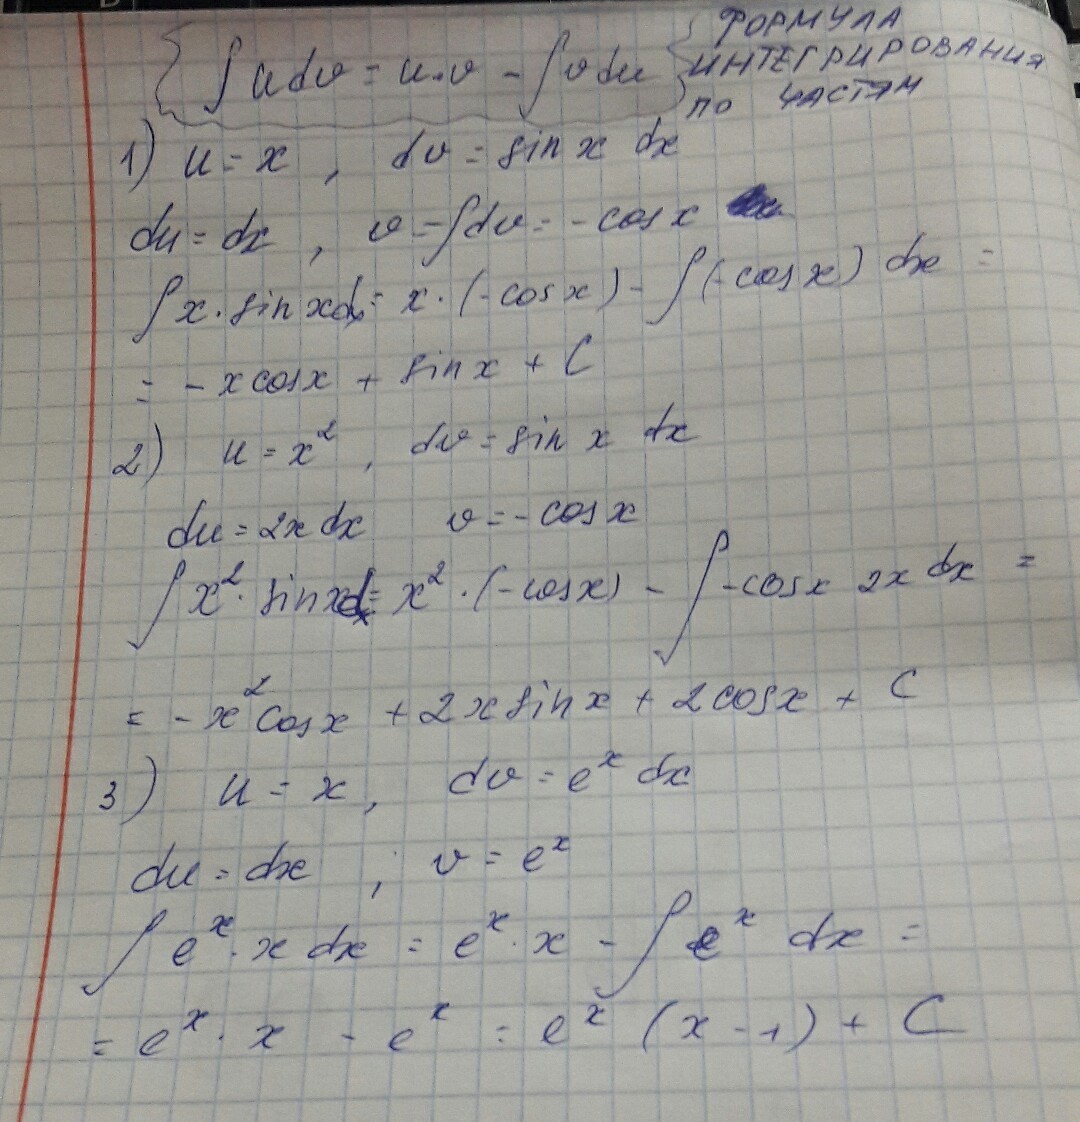 ∫ u dv = u·v - ∫ v du ФОРМУЛА
ИНТЕГРИРОВАНИЯ
ПО ЧАСТЯМ
1) u = x , dv = sin x dx
du = dx , v = ∫dv = -cos x
∫ x · sin x dx = x · (-cos x) - ∫ (-cos x) dx =
= -x cos x + sin x + C
2) u = x² , dv = sin x dx
du = 2x dx v = -cos x
∫ x² · sin x dx = x² · (-cos x) - ∫ -cos x 2x dx =
= -x² cos x + 2x sin x + 2 cos x + C
3) u = x , dv = eˣ dx
du = dx ; v = eˣ
∫ eˣ · x dx = eˣ · x - ∫ eˣ dx =
= eˣ · x - eˣ = eˣ (x - 1) + C